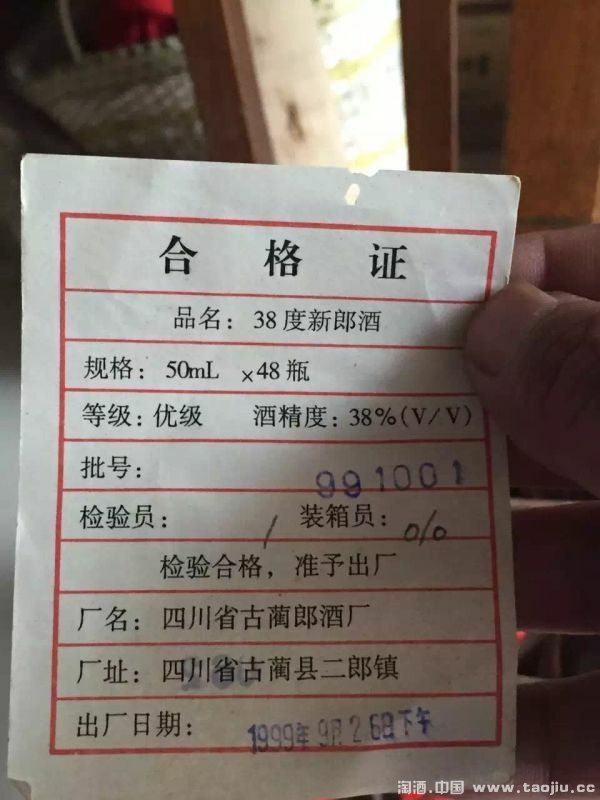 合格证
品名：38度新郎酒
规格：50mL ×48瓶
等级：优级 酒精度：38%(V/V)
批号： 991001
检验员： 1 装箱员： 010
检验合格，准予出厂
厂名：四川省古蔺郎酒厂
厂址：四川省古蔺县二郎镇
出厂日期： 1999年9月26日下午
淘酒.中国 www.taojiu.cc